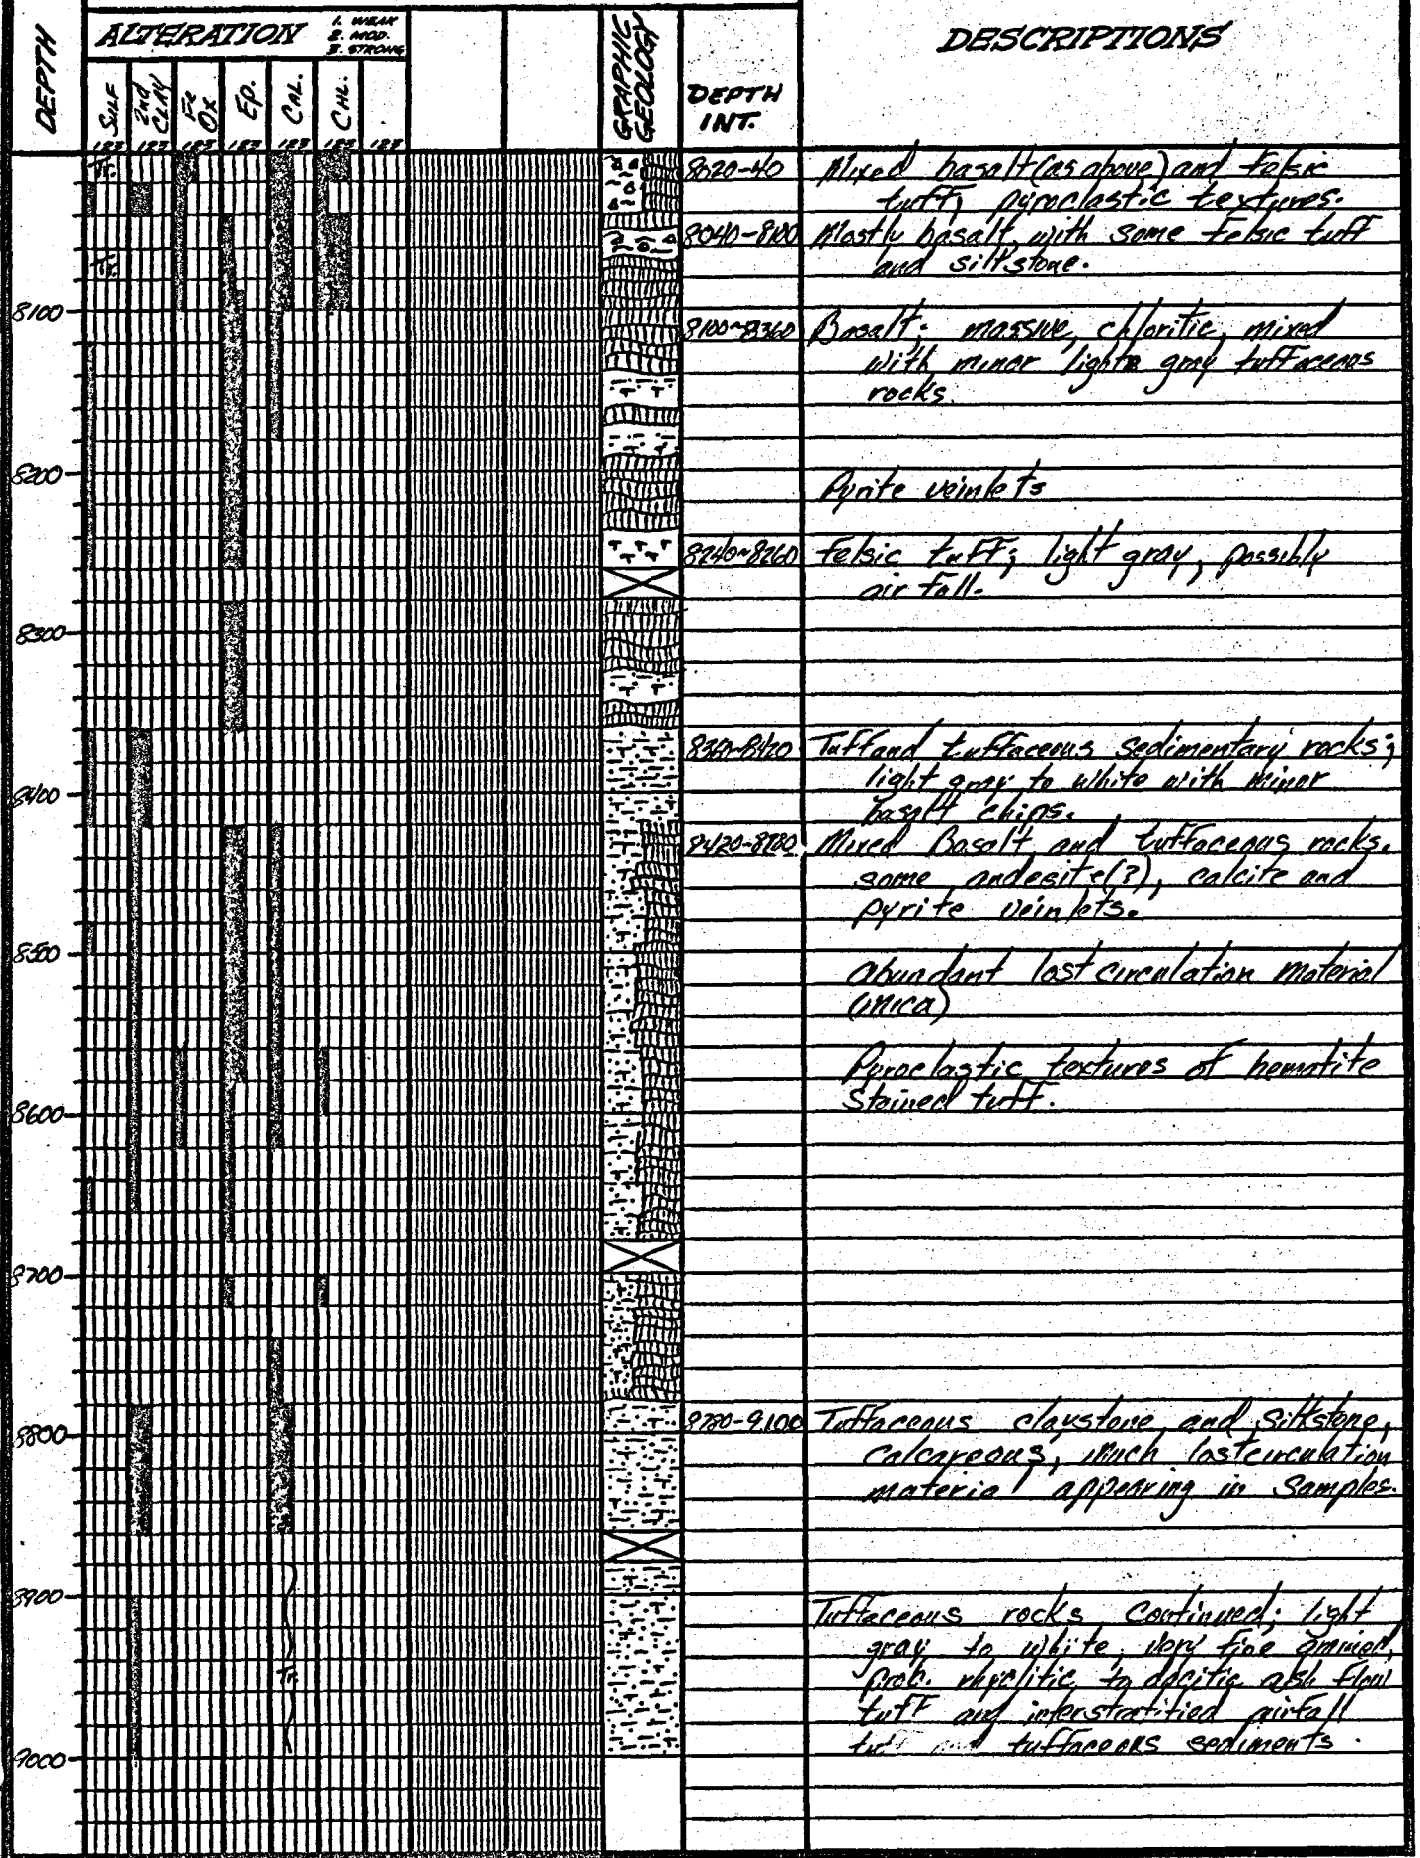 DEPTH
ALTERATION
1. WEAK
2. MOD.
3. STRONG
SULF
2nd CLAY
Fe OX
EP.
CAL.
CHL.
123 123 123 123 123 123 123
GRAPHIC GEOLOGY
DEPTH INT.
DESCRIPTIONS
Tr.
8020-40 Mixed basalt (as above) and felsic
tuff, pyroclastic textures.
8040-8100 Mostly basalt, with some felsic tuff
Tr. and siltstone.
8100
8100-8360 Basalt; massive, chloritic, mixed
with minor light gray tuffaceous
rocks.
8200
Pyrite veinlets
8240-8260 Felsic tuff; light gray, possibly
air fall.
8300
8360-8420 Tuff and tuffaceous sedimentary rocks;
light gray to white with minor
8400
basalt chips.
8420-8780 Mixed Basalt and tuffaceous rocks.
some andesite(?), calcite and
pyrite veinlets.
8500
abundant lost circulation material
(mica)
Pyroclastic textures of hematite
8600
stained tuff.
8700
8780-9100 Tuffaceous claystone and siltstone,
8800
calcareous, much lost circulation
material appearing in samples.
8900
Tuffaceous rocks continued; light
gray to white, very fine grained,
Tr. prob. rhyolitic to dacitic ash flow
tuff and interstratified airfall
tuff and tuffaceous sediments.
9000